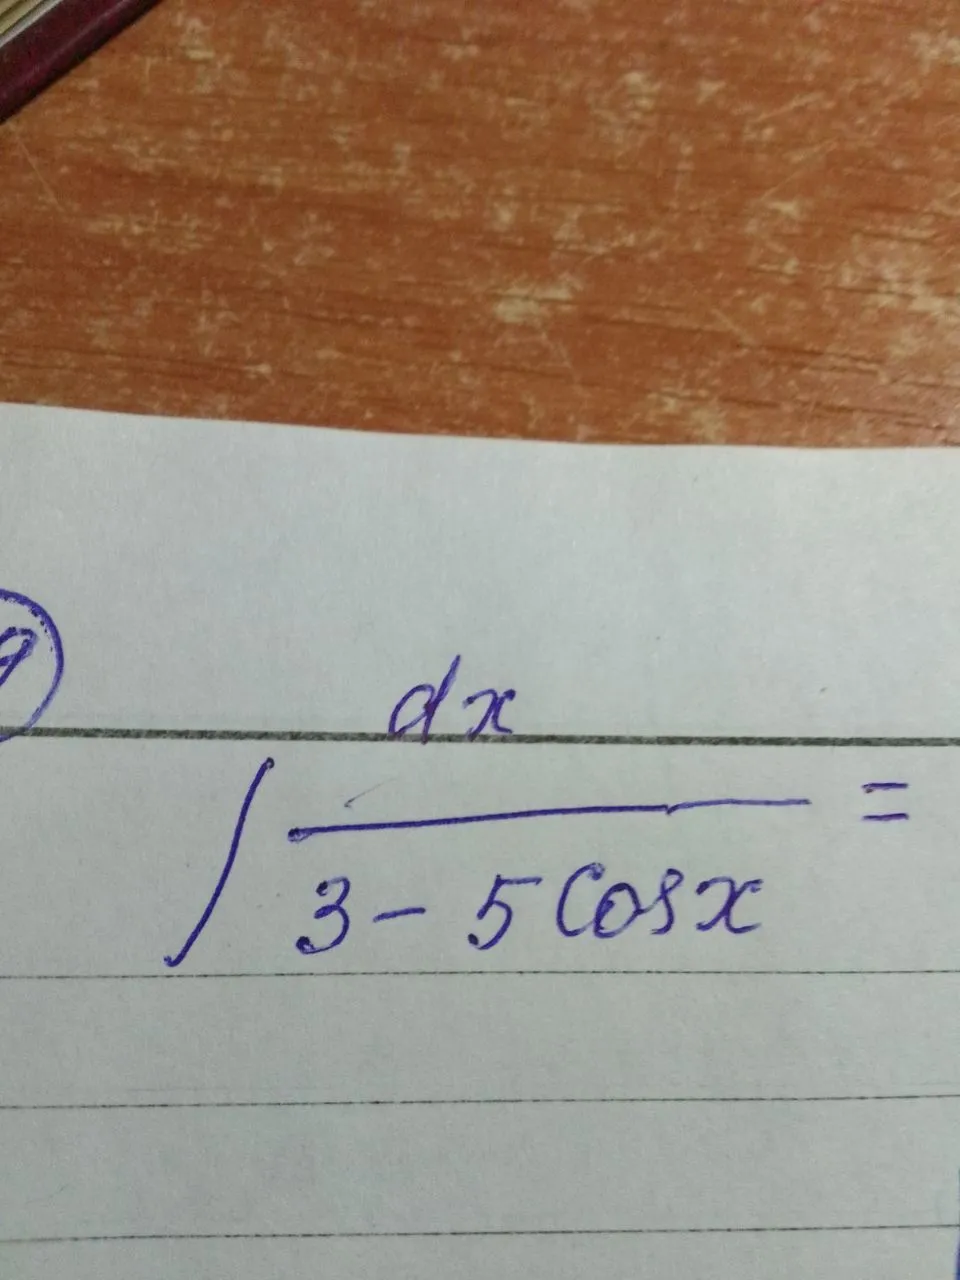 dx
∫ ――― =
3 - 5 cos x